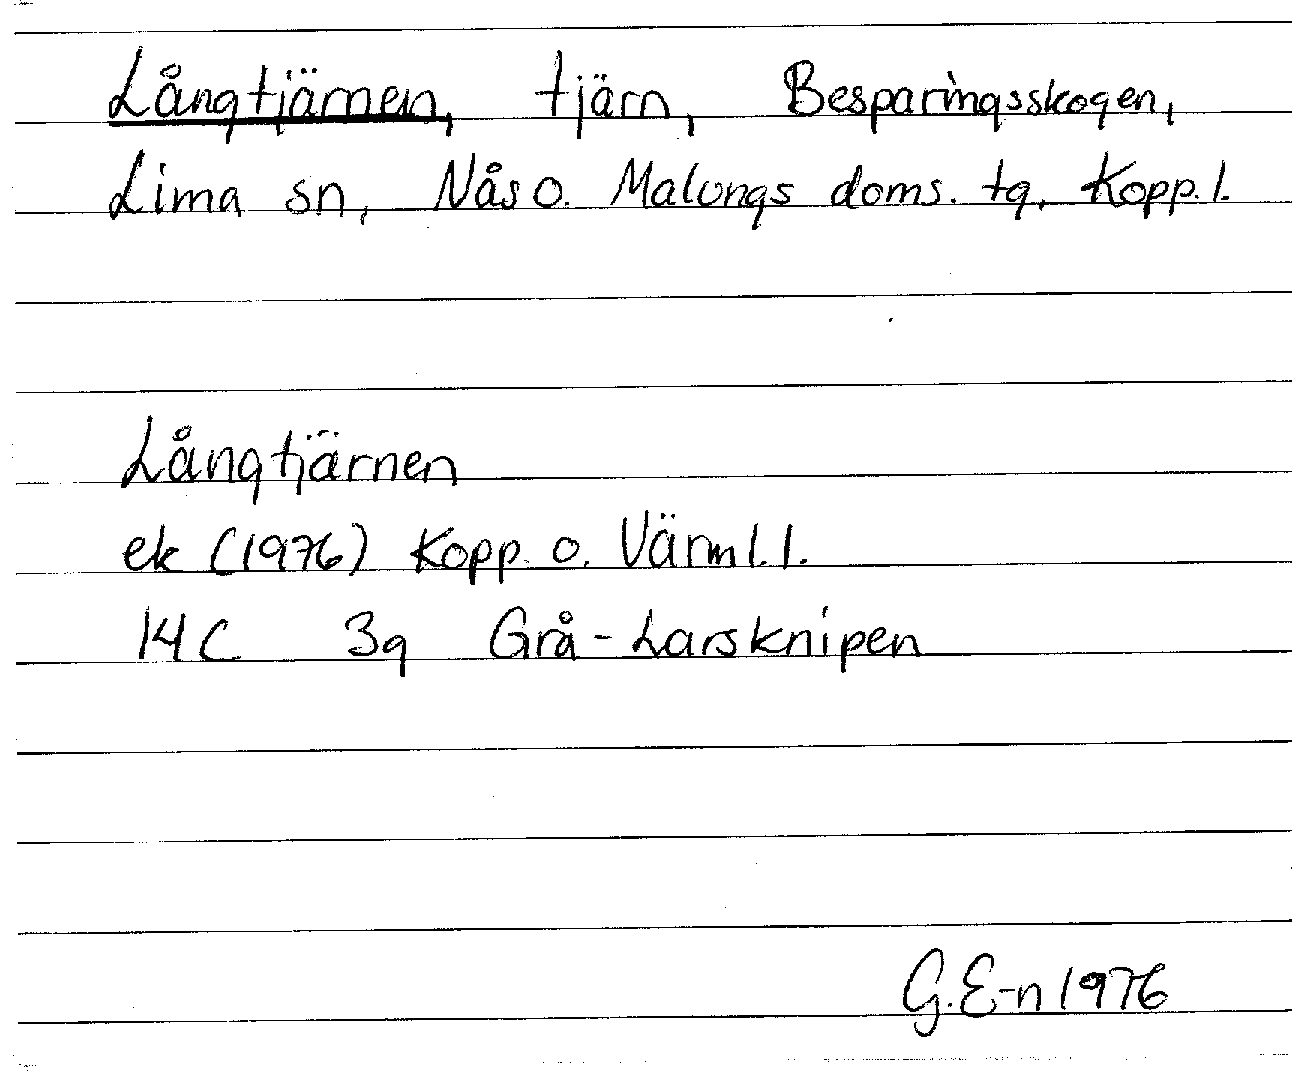 Långtjärnen, tjärn, Besparingsskogen,
Lima sn, Nås o. Malungs doms. tg, Kopp. l.
Långtjärnen
ek (1976) Kopp. o. Värml. l.
14 C 3g Grå-Larsknipen
G. E-n 1976